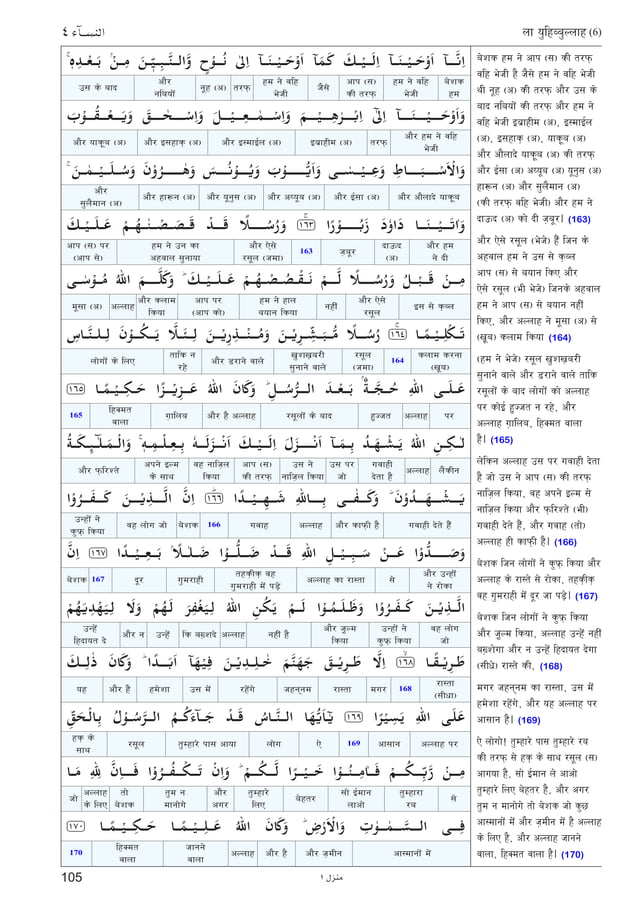 ला युहिब्बुल्लाह (6)
النسآء ٤
اِنَّآ اَوْحَيْنَآ اِلَيْكَ كَمَآ اَوْحَيْنَآ اِلٰى نُوْحٍ وَّالنَّبِيّٖنَ مِنْۢ بَعْدِهٖ ۚ
बेशक हम | हम ने वहि भेजी | आप (स) की तरफ़ | जैसे | हम ने वहि भेजी | तरफ़ | नूह (अ) | और नबियों | उस के बाद
وَاَوْحَيْنَآ اِلٰٓى اِبْرٰهِيْمَ وَاِسْمٰعِيْلَ وَاِسْحٰقَ وَيَعْقُوْبَ
और हम ने वहि भेजी | तरफ़ | इब्राहीम (अ) | और इस्माईल (अ) | और इसहाक़ (अ) | और याकूब (अ)
وَالْاَسْبَاطِ وَعِيْسٰى وَاَيُّوْبَ وَيُوْنُسَ وَهٰرُوْنَ وَسُلَيْمٰنَ ۚ
और औलादे याकूब | और ईसा (अ) | और अय्यूब (अ) | और यूनुस (अ) | और हारून (अ) | और सुलैमान (अ)
وَاٰتَيْنَا دَاوٗدَ زَبُوْرًا ۚ ١٦٣ وَرُسُلًا قَدْ قَصَصْنٰهُمْ عَلَيْكَ
और हम ने दी | दाऊद (अ) | ज़बूर | 163 | और ऐसे रसूल (जमा) | हम ने उन का अहवाल सुनाया | आप (स) पर (आप से)
مِنْ قَبْلُ وَرُسُلًا لَّمْ نَقْصُصْهُمْ عَلَيْكَ ۗ وَكَلَّمَ اللّٰهُ مُوْسٰى
इस से क़ब्ल | और ऐसे रसूल | नहीं | हम ने हाल बयान किया | आप पर (आप को) | और कलाम किया | अल्लाह | मूसा (अ)
تَكْلِيْمًا ۚ ١٦٤ رُسُلًا مُّبَشِّرِيْنَ وَمُنْذِرِيْنَ لِئَلَّا يَكُوْنَ لِلنَّاسِ
कलाम करना (खूब) | 164 | रसूल (जमा) | खुशख़बरी सुनाने वाले | और डराने वाले | ताकि न रहे | लोगों के लिए
عَلَى اللّٰهِ حُجَّةٌۢ بَعْدَ الرُّسُلِ ۗ وَكَانَ اللّٰهُ عَزِيْزًا حَكِيْمًا ١٦٥
पर | अल्लाह | हुज्जत | रसूलों के बाद | और है अल्लाह | ग़ालिब | हिक्मत वाला | 165
لٰكِنِ اللّٰهُ يَشْهَدُ بِمَآ اَنْزَلَ اِلَيْكَ اَنْزَلَهٗ بِعِلْمِهٖ ۚ وَالْمَلٰٓئِكَةُ
लेकिन | अल्लाह | गवाही देता है | उस पर जो | उस ने नाज़िल किया | आप (स) की तरफ़ | वह नाज़िल किया | अपने इल्म के साथ | और फ़रिश्ते
يَشْهَدُوْنَ ۗ وَكَفٰى بِاللّٰهِ شَهِيْدًا ۗ ١٦٦ اِنَّ الَّذِيْنَ كَفَرُوْا
गवाही देते हैं | और काफ़ी है | अल्लाह | गवाह | 166 | बेशक | वह लोग जो | उन्हों ने कुफ़्र किया
وَصَدُّوْا عَنْ سَبِيْلِ اللّٰهِ قَدْ ضَلُّوْا ضَلٰلًۢا بَعِيْدًا ١٦٧ اِنَّ
और उन्हों ने रोका | से | अल्लाह का रास्ता | तहक़ीक़ वह गुमराही में पड़े | गुमराही | दूर | 167 | बेशक
الَّذِيْنَ كَفَرُوْا وَظَلَمُوْا لَمْ يَكُنِ اللّٰهُ لِيَغْفِرَ لَهُمْ وَلَا لِيَهْدِيَهُمْ
वह लोग जो | उन्हों ने कुफ़्र किया | और ज़ुल्म किया | नहीं है | अल्लाह | कि बख़्शदे | उन्हें | और न | उन्हें हिदायत दे
طَرِيْقًا ۙ ١٦٨ اِلَّا طَرِيْقَ جَهَنَّمَ خٰلِدِيْنَ فِيْهَآ اَبَدًا ۗ وَكَانَ ذٰلِكَ
रास्ता (सीधा) | 168 | मगर | रास्ता | जहन्नम | रहेंगे | उस में | हमेशा | और है | यह
عَلَى اللّٰهِ يَسِيْرًا ١٦٩ يٰٓاَيُّهَا النَّاسُ قَدْ جَآءَكُمُ الرَّسُوْلُ بِالْحَقِّ
अल्लाह पर | आसान | 169 | ऐ | लोग | तुम्हारे पास आया | रसूल | हक़ के साथ
مِنْ رَّبِّكُمْ فَاٰمِنُوْا خَيْرًا لَّكُمْ ۗ وَاِنْ تَكْفُرُوْا فَاِنَّ لِلّٰهِ مَا
से | तुम्हारा रब | सो ईमान लाओ | बेहतर | तुम्हारे लिए | और अगर | तुम न मानोगे | तो बेशक | अल्लाह के लिए | जो
فِى السَّمٰوٰتِ وَالْاَرْضِ ۗ وَكَانَ اللّٰهُ عَلِيْمًا حَكِيْمًا ١٧٠
आस्मानों में | और ज़मीन | और है | अल्लाह | जानने वाला | हिक्मत वाला | 170
बेशक हम ने आप (स) की तरफ़
वहि भेजी है जैसे हम ने वहि भेजी
थी नूह (अ) की तरफ़ और उस के
बाद नबियों की तरफ़ और हम ने
वहि भेजी इब्राहीम (अ), इस्माईल
(अ), इसहाक़ (अ), याकूब (अ)
और औलादे याकूब (अ) की तरफ़
और ईसा (अ) अय्यूब (अ) यूनुस (अ)
हारून (अ) और सुलैमान (अ)
(की तरफ़ वहि भेजी) और हम ने
दाऊद (अ) को दी ज़बूर। (163)
और ऐसे रसूल (भेजे) हैं जिन के
अहवाल हम ने उस से क़ब्ल
आप (स) से बयान किए और
ऐसे रसूल (भी भेजे) जिनके अहवाल
हम ने आप (स) से बयान नहीं
किए, और अल्लाह ने मूसा (अ) से
(खूब) कलाम किया (164)
(हम ने भेजे) रसूल खुशख़बरी
सुनाने वाले और डराने वाले ताकि
रसूलों के बाद लोगों को अल्लाह
पर कोई हुज्जत न रहे, और
अल्लाह ग़ालिब, हिक्मत वाला
है। (165)
लेकिन अल्लाह उस पर गवाही देता
है जो उस ने आप (स) की तरफ़
नाज़िल किया, वह अपने इल्म से
नाज़िल किया और फ़रिश्ते (भी)
गवाही देते हैं, और गवाह (तो)
अल्लाह ही काफ़ी है। (166)
बेशक जिन लोगों ने कुफ़्र किया और
अल्लाह के रास्ते से रोका, तहक़ीक़
वह गुमराही में दूर जा पड़े। (167)
बेशक जिन लोगों ने कुफ़्र किया
और ज़ुल्म किया, अल्लाह उन्हें नहीं
बख़्शेगा और न उन्हें हिदायत देगा
(सीधे) रास्ते की, (168)
मगर जहन्नम का रास्ता, उस में
हमेशा रहेंगे, और यह अल्लाह पर
आसान है। (169)
ऐ लोगो! तुम्हारे पास तुम्हारे रब
की तरफ़ से हक़ के साथ रसूल (स)
आगया है, सो ईमान ले आओ
तुम्हारे लिए बेहतर है, और अगर
तुम न मानोगे तो बेशक जो कुछ
आस्मानों में और ज़मीन में है अल्लाह
के लिए है, और अल्लाह जानने
वाला, हिक्मत वाला है। (170)
105
منزل ١